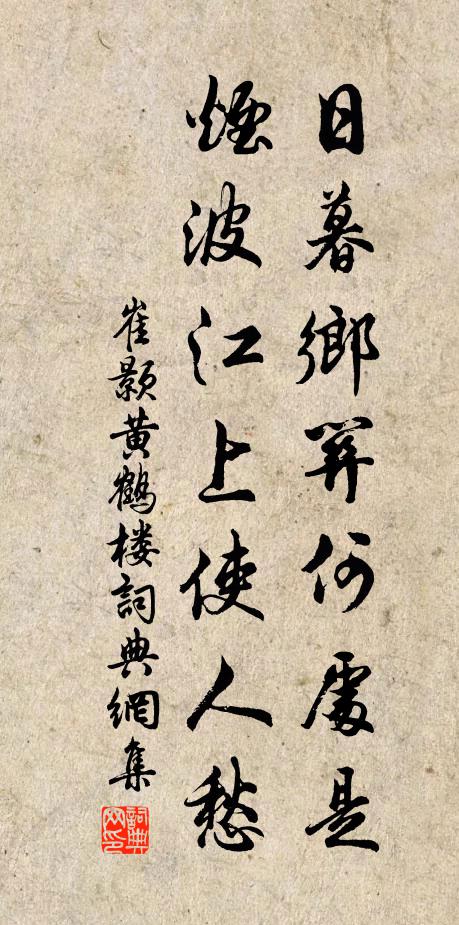 日暮鄉關何處是
煙波江上使人愁
崔顥黃鶴樓詞典網集
詞典網印